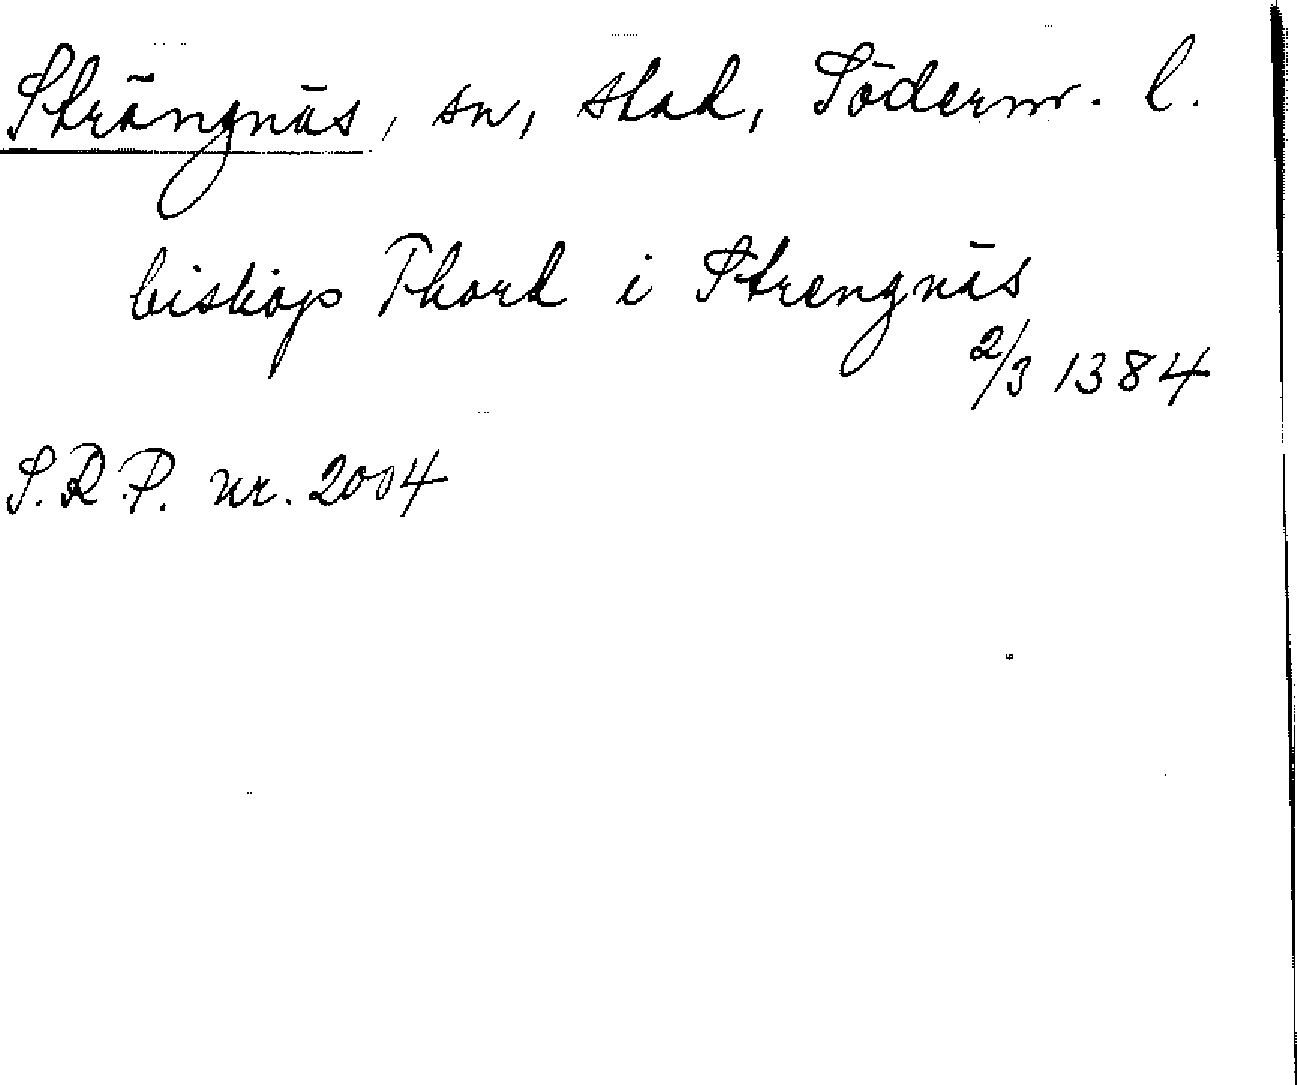 Strängnäs, sn, stad, Söderm. l.
biskop Thord i Strengnäs
2/3 1384
S.R.P. nr. 2004